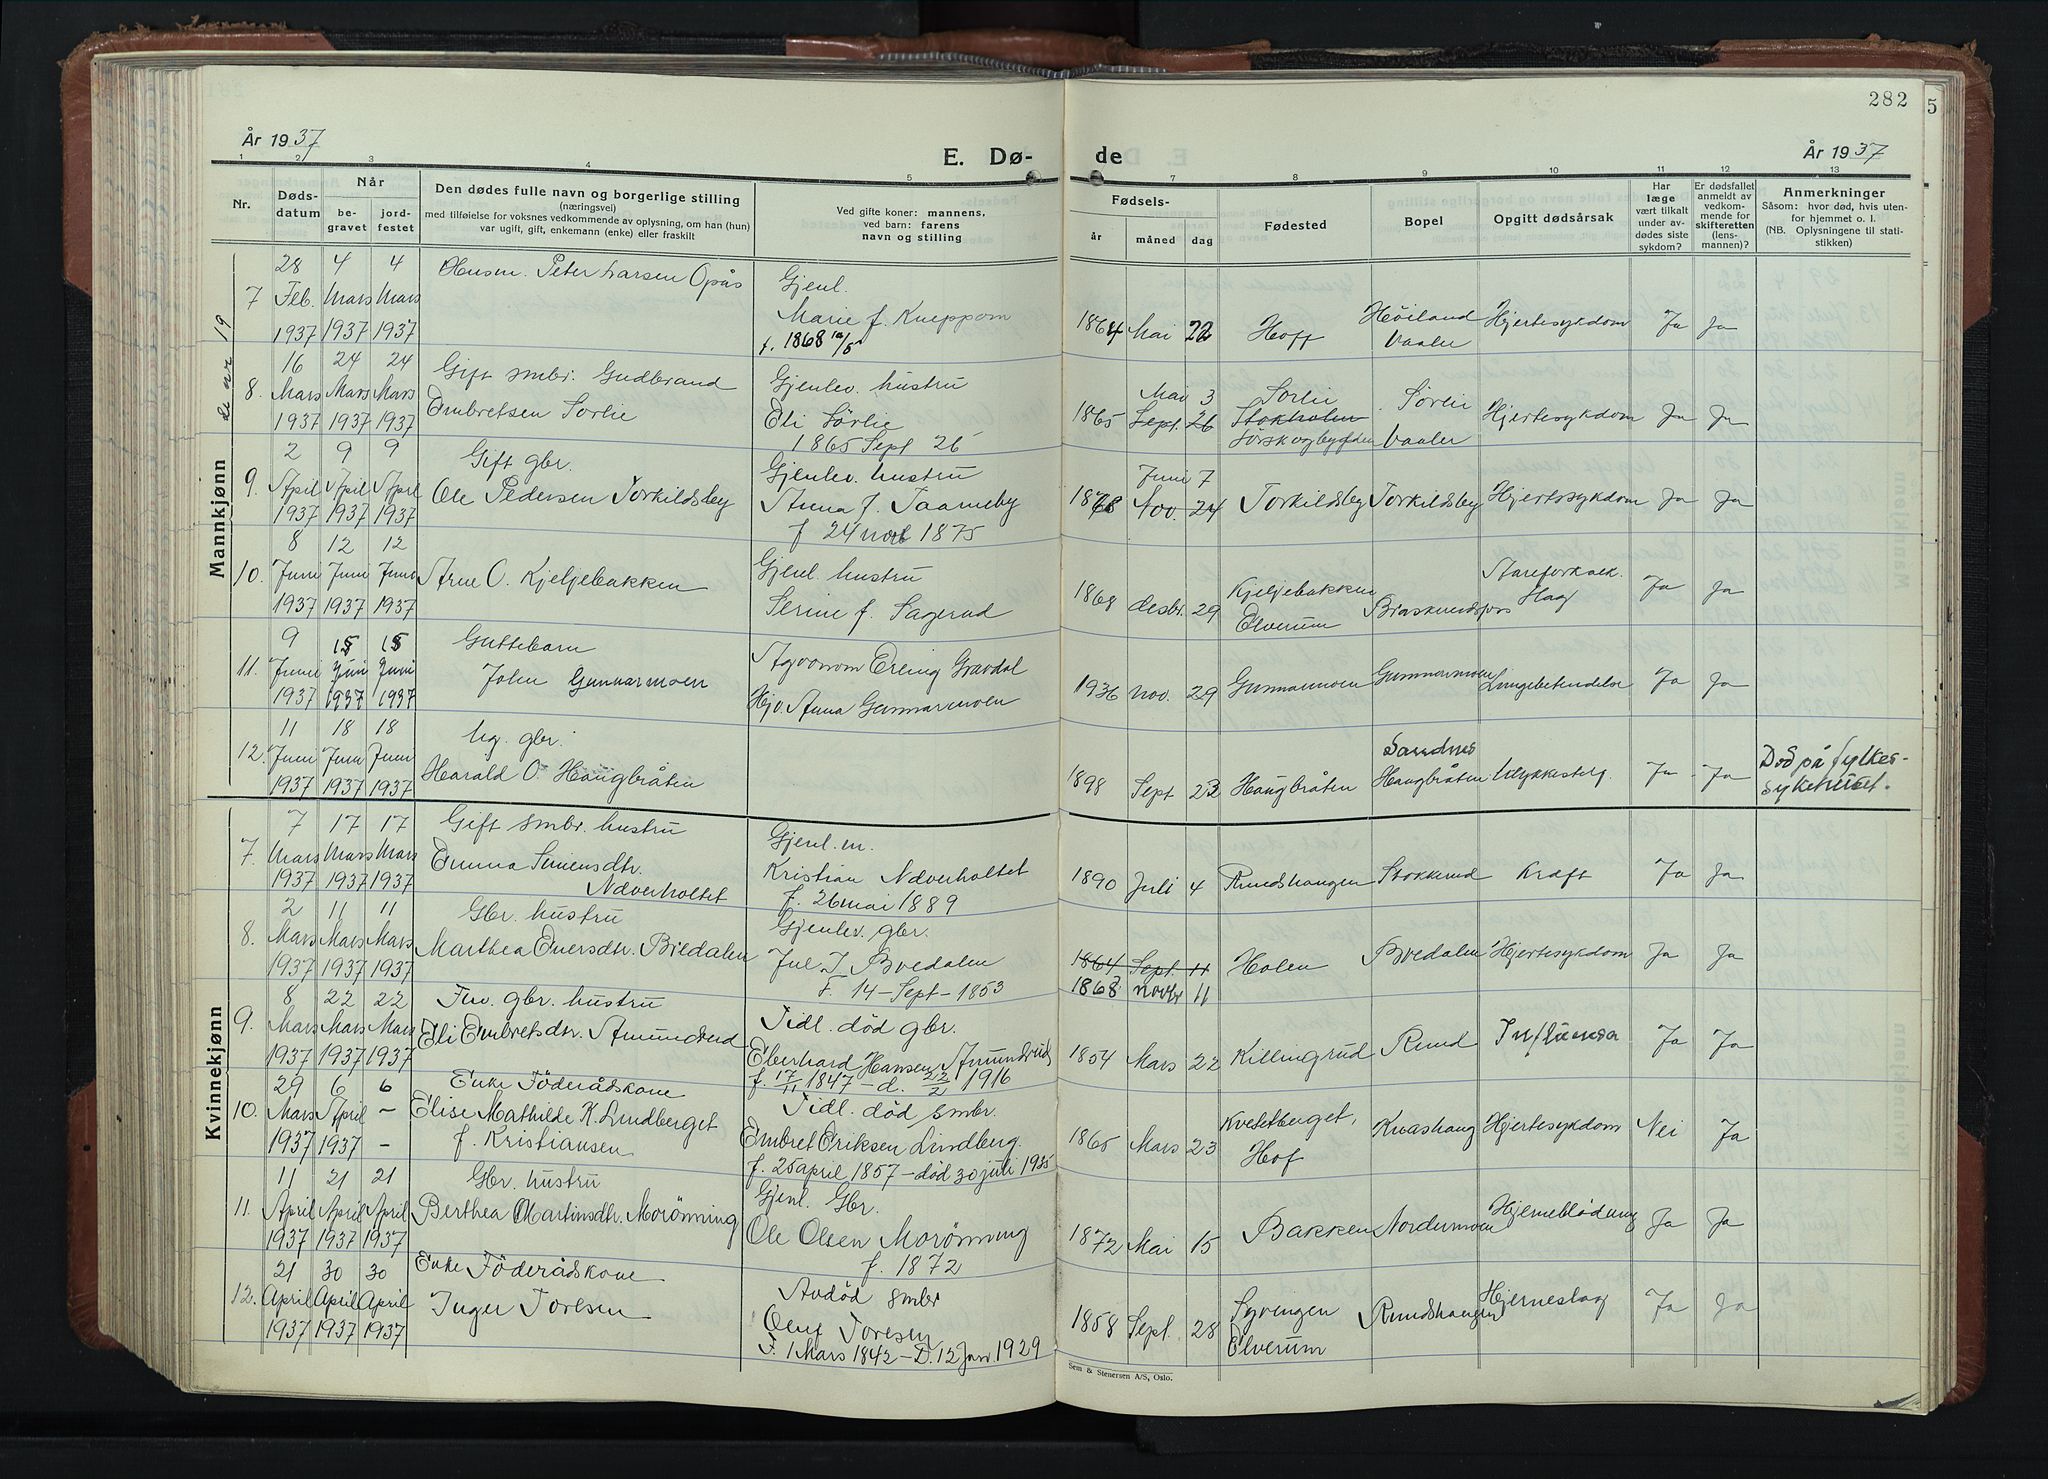 282
5
År 1937
E. Dø-
de
År 1937
1 2 3 4 5 7 8 9 10 11 12 13
Nr.
Døds-
datum
Når
be-
gravet
jord-
festet
Den dødes fulle navn og borgerlige stilling
(næringsvei)
med tilføielse for voksnes vedkommende av oplysning, om han (hun)
var ugift, gift, enkemann (enke) eller fraskilt
Ved gifte koner: mannens,
ved barn: farens
navn og stilling
Fødsels-
år
måned
dag
Fødested
Bopel
Opgitt dødsårsak
Har
læge
vært tilkalt
under av-
dødes siste
sykdom?
Er dødsfallet
anmeldt av
vedkom-
mende for
skifteretten
(lens-
mannen)?
Anmerkninger
Såsom: hvor død, hvis uten-
for hjemmet o. l.
(NB. Oplysningene til stati-
stikken)
Mannkjønn
28 4 4 Peter Larsen Opås Gjenl.
7 Feb. Mars Mars Marie f. Kneppom 1864 Mai 22 Hoff Høiland Hjertesykdom Ja Ja
1937 1937 1937 f. 1868 Vaaler
16 24 24 Gift smbr. Gudbrand Gjenlev. hustru Mai 3 Sørlie
8. Mars Mars Mars Embretsen Sørlie Eli Sørlie 1865 Sept. 26 Stokholen Sørlie Hjertesykdom Ja Ja
1937 1937 1937 1865 Sept 26 Sørskogbygden Vaaler
2 9 9 Gift gbr. Gjenlev. hustru Juni 7
9. April April April Ole Pedersen Torkildsby Anna f. Taarneby Nov. 24 Torkildsby Torkildsby Hjertesykdom Ja Ja
1937 1937 1937 f 24 nov 1875
8 12 12 Gjenl. hustru
10. Juni Juni Juni Arne O. Kjeljebakken Serine f. Sagerud 1868 desbr. 29 Kjeljebakken Braskeredfoss Ja Ja
1937 1937 1937 Elverum
9 15 15 Guttebarn Agronom Erling Gravdal
11. Juni Juni Juni John Gunnarmoen Hjv. Anna Gunnarmoen 1936 nov. 29 Gunnarmoen Gunnarmoen Lungebetendelse Ja Ja
1937 1937 1937
11 18 18 Ug. gbr. Sandnes Død på fylkes-
12. Juni Juni Juni Harald O. Haugbråten 1898 Sept 23 Haugbråten Haugbråten Ulykkestilf. Ja Ja sykehuset.
1937 1937 1937
Kvinnekjønn
7 17 17 Gift smbr. hustru Gjenl. m.
7. Mars Mars Mars Emma Simensdtr. Kristian Ndverholtet 1890 Juli 4 Rundshaugen Stokkerud Kræft Ja Ja
1937 1937 1937 Ndverholtet f. 26 mai 1889
2 11 11 Gbr. hustru Gjenlev. gbr.
8. Mars Mars Mars Marthea Eversdtr. Bredalen Jul J Bredalen 1864 Sept. 11 Holen Bredalen Hjertesykdom Ja Ja
1937 1937 1937 F. 14 - Sept - 1853 1868 novbr 11
8 22 22 Fhv. gbr. hustru Tidl. død gbr.
9. Mars Mars Mars Eli Embretsdtr. Amundsrud Eberhard Hansen Amundsrud 1854 Mars 22 Killingrud Rund Influensa Ja Ja
1937 1937 1937 f. 17/11 1847 - d. 22/2 1916
29 6 6 Enke Föderådskone Tidl. død smbr.
10. Mars April - Elise Mathilde K. Lindberget Embret Eriksen Lindberg. 1865 Mars 23 Kvetetberget, Knashaug Hjertesykdom Nei Ja
1937 1937 - f. Kristiansen f. 25 april 1857 - død 30 juli 1935 Hof
11 21 21 Gbr. hustru Gjenl. Gbr.
11. April April April Berthea Martinsdtr. Morönning Ole Olsen Morönning 1872 Mai 15 Bakken Nordermoen Hjerneblödning Ja Ja
1937 1937 1937 f. 1872
21 30 30 Enke Föderådskone Avdød smbr
12. April April April Inger Toresen Oluf Toresen 1858 Sept. 28 Syvengen Rundshaugen Hjerneslag Ja Ja
1937 1937 1937 F. 1 Mars 1842 - D. 12 Jan 1929 Elverum
Sem & Stenersen A/S, Oslo.